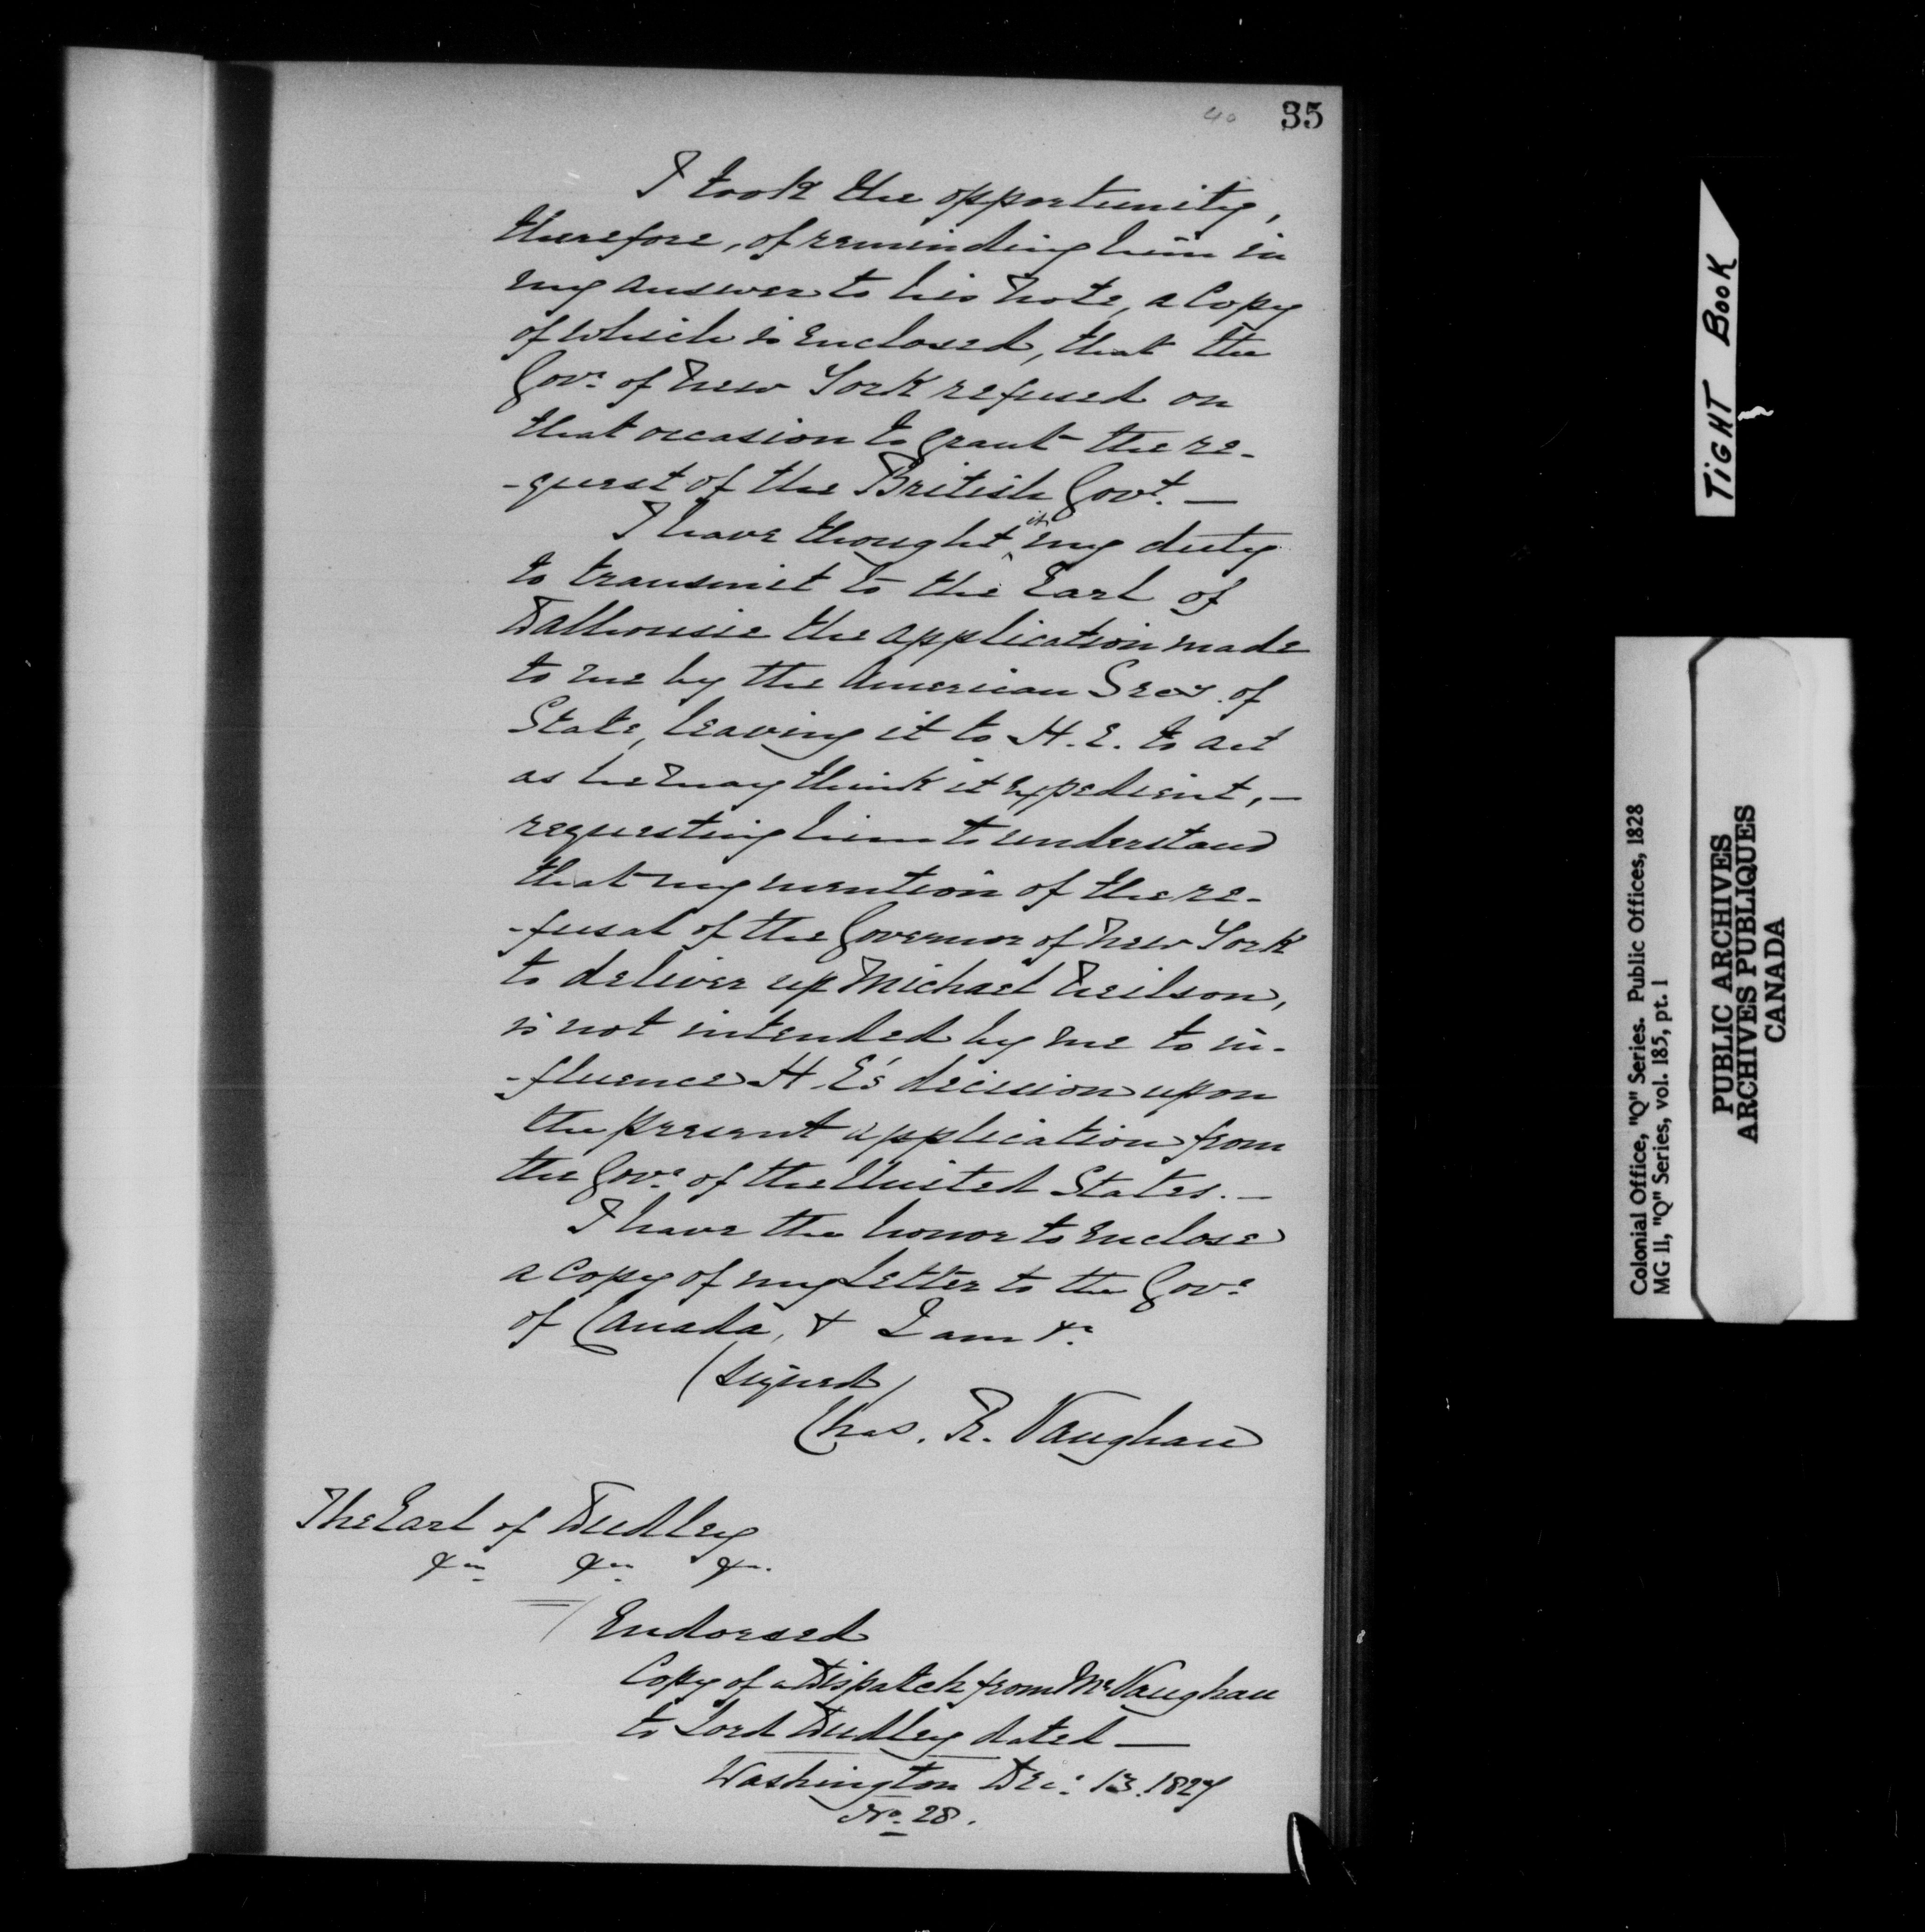 40 35
I took the opportunity,
therefore, of reminding him in
my answer to his note, a Copy
of which is enclosed, that the
Govr. of New York refused on
that occasion to grant the re-
-quest of the British Govt. —
I have thought it my duty
to transmit to the Earl of
Dalhousie the application made
to me by the American Secy. of
State, leaving it to H. E. to act
as he may think it expedient, —
requesting him to understand
that my mention of the re-
-fusal of the Governor of New York
to deliver up Michael Neilson,
is not intended by me to in-
-fluence H. E's decision upon
the present application from
the Govr. of the United States. —
I have the honor to enclose
a Copy of my letter to the Govr.
of Canada, & I am &c.
(signed)
Chas. R. Vaughan
The Earl of Dudley
&c. &c. &c.
Endorsed
Copy of a Dispatch from Mr. Vaughan
to Lord Dudley dated —
Washington Dec. 13. 1827
No. 28.
TIGHT BOOK
Colonial Office, "Q" Series. Public Offices, 1828
MG 11, "Q" Series, vol. 185, pt. 1
PUBLIC ARCHIVES
ARCHIVES PUBLIQUES
CANADA